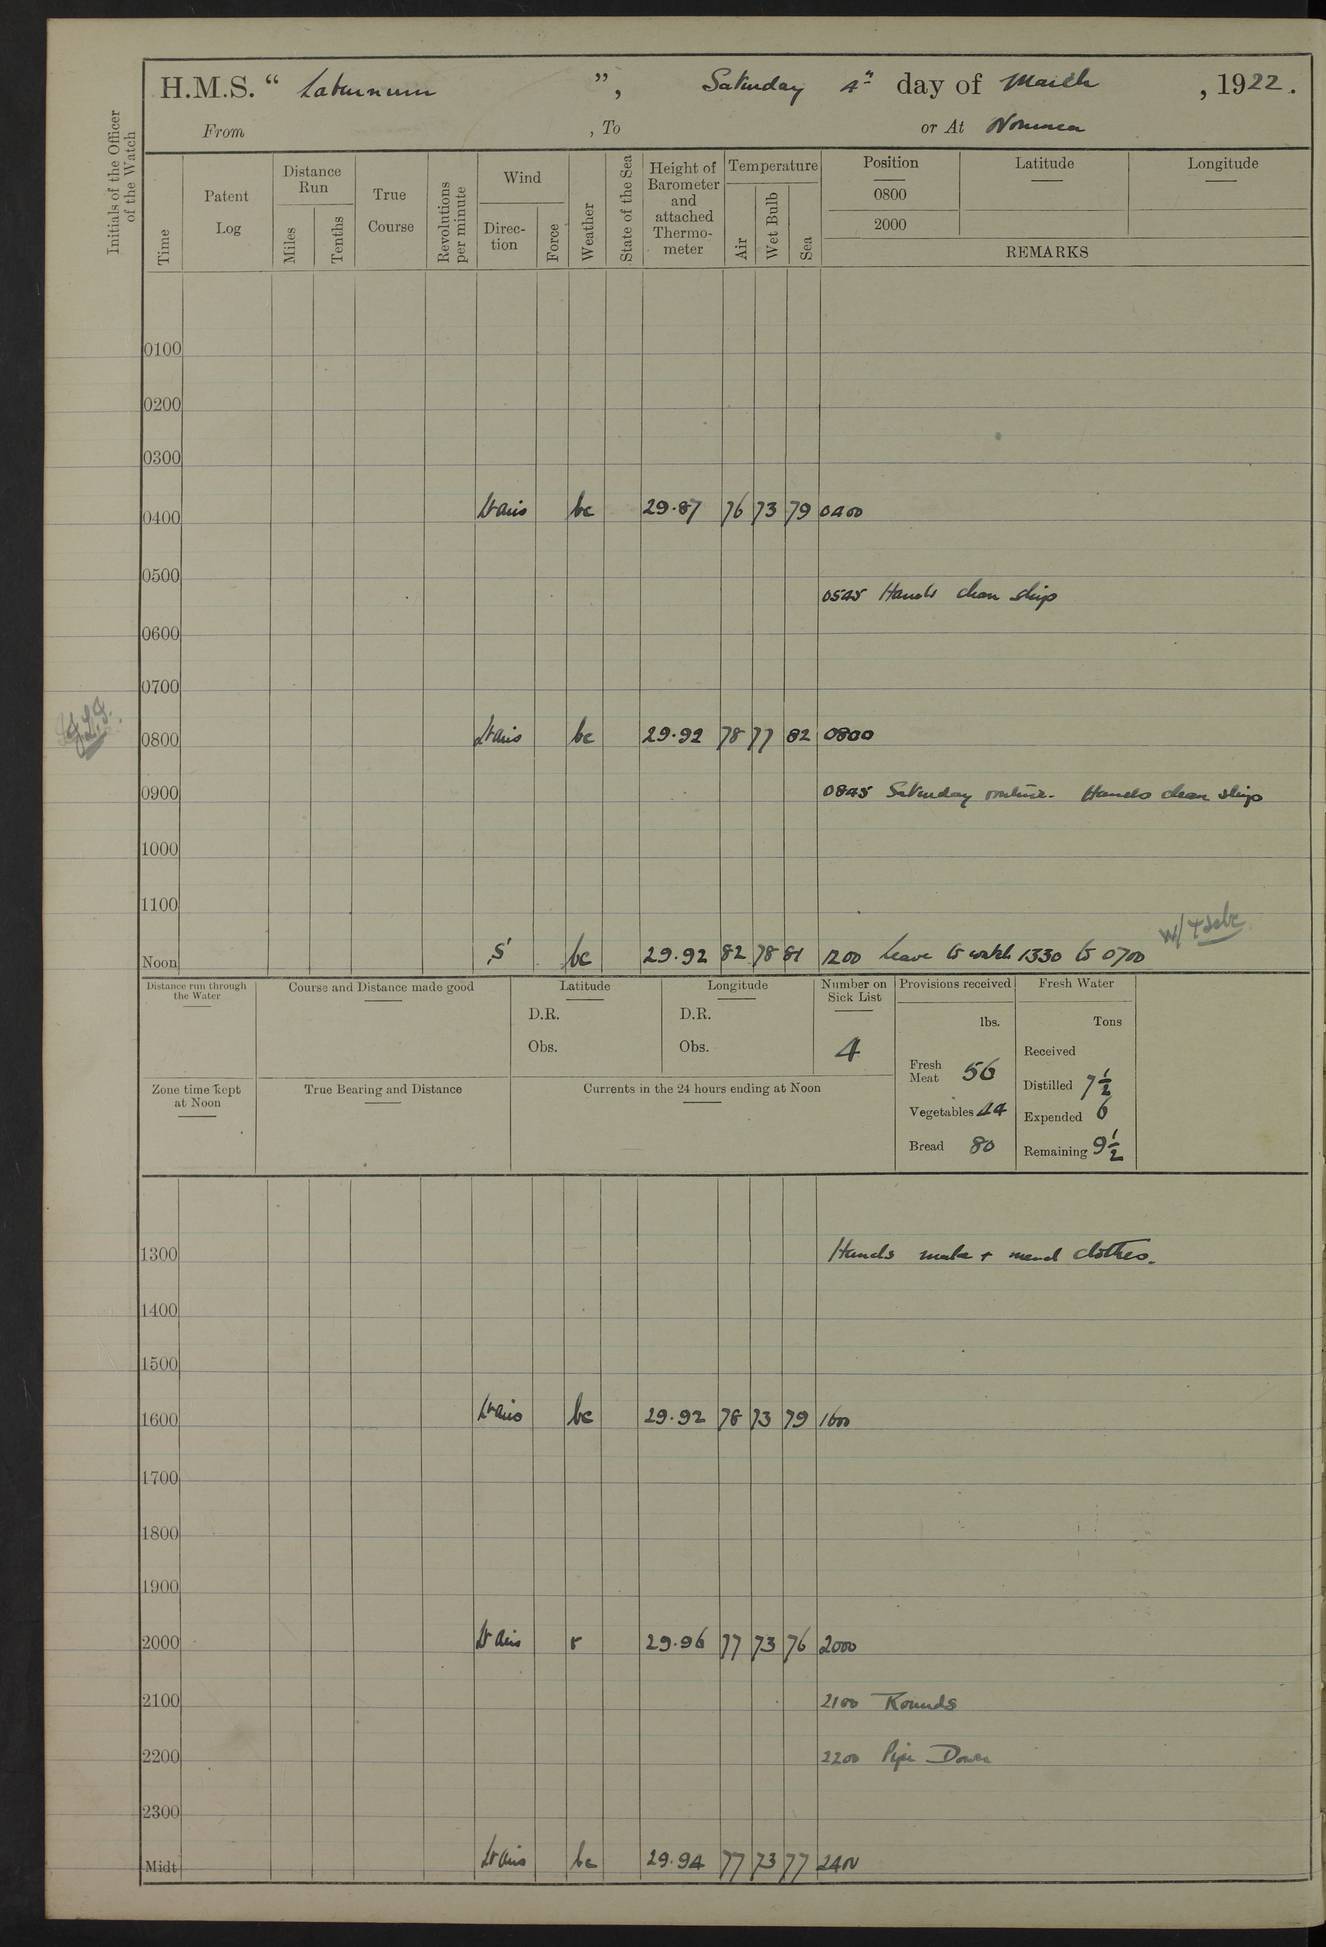 H.M.S. “ Laburnum ”, Saturday 4th day of March , 1922.
From , To or At Noumea
Initials of the Officer of the Watch
Time
Patent Log
Distance Run
Miles
Tenths
True Course
Revolutions per minute
Wind
Direc-tion
Force
Weather
State of the Sea
Height of Barometer and attached Thermo-meter
Temperature
Air
Wet Bulb
Sea
Position
0800
2000
Latitude
Longitude
REMARKS
0100
0200
0300
0400 Lt airs bc 29.87 76 73 79 0400
0500
0545 Hands clean ship
0600
0700
0800 Lt airs bc 29.92 78 77 82 0800
0900 0845 Saturday routine. Hands clean ship
1000
1100
Noon S' bc 29.92 82 78 81 1200 Leave to watch 1330 to 0700
Distance run through the Water
Course and Distance made good
Latitude
D.R.
Obs.
Longitude
D.R.
Obs.
Number on Sick List
4
Provisions received
lbs.
Fresh Meat 56
Vegetables 44
Bread 80
Fresh Water
Tons
Received
Distilled 7½
Expended 6
Remaining 9½
Zone time kept at Noon
True Bearing and Distance
Currents in the 24 hours ending at Noon
1300 Hands make + mend clothes.
1400
1500
1600 Lt airs bc 29.92 78 73 79 1600
1700
1800
1900
2000 Lt airs r 29.96 77 73 76 2000
2100 2100 Rounds
2200 2200 Pipe Down
2300
Midt Lt airs bc 29.94 77 73 77 2400